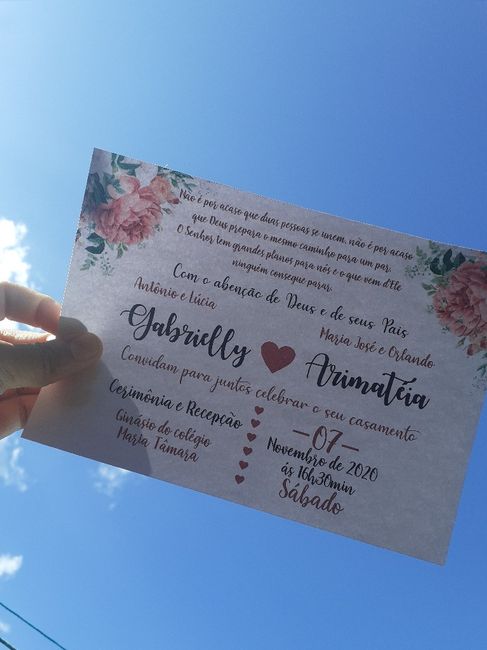 Não é por acaso que duas pessoas se unem, não é por acaso
que Deus prepara o mesmo caminho para um par.
O Senhor tem grandes planos para nós e o que vem d'Ele
ninguém consegue parar.
Com a abenção de Deus e de seus Pais
Antônio e Lúcia
Maria José e Orlando
Gabrielly
Arimatéia
Convidam para juntos celebrar o seu casamento
Cerimônia e Recepção
Ginásio do colégio
Maria Tâmara
07
Novembro de 2020
ás 16h30min
Sábado